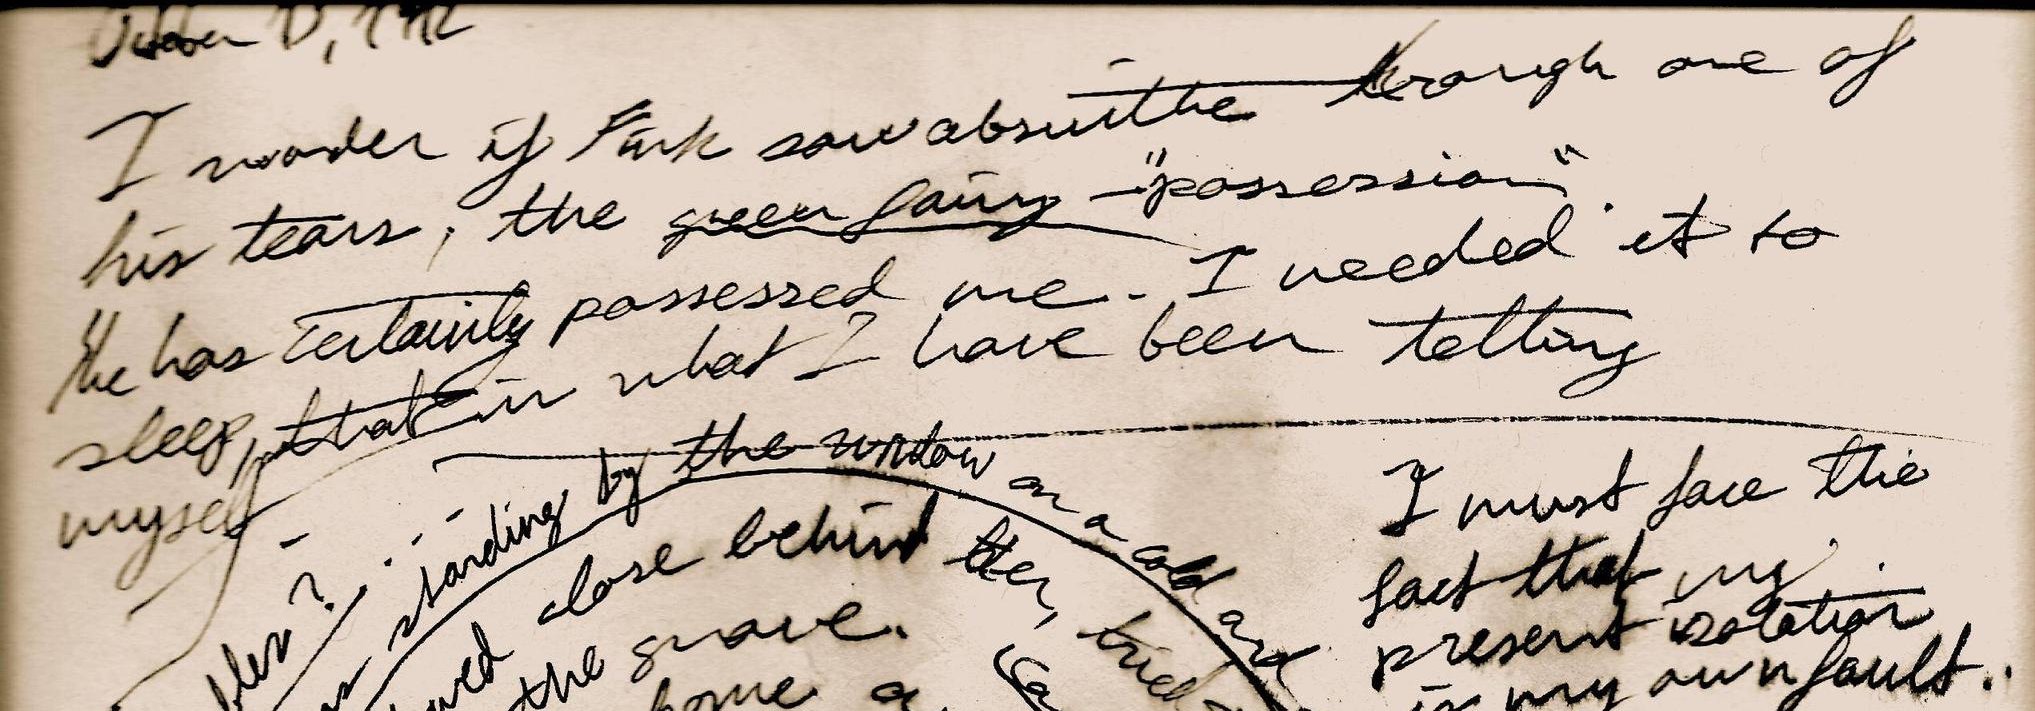 October
I wonder if Fink saw absinthe through one of
his tears, the green fairy - "possession".
He has certainly possessed me. I needed it to
sleep, that in what I have been telling
myself
standing by the window on a cold
close behind her, tried
the grave.
home a
I must face the
fact that my
present isolation
is my own fault.